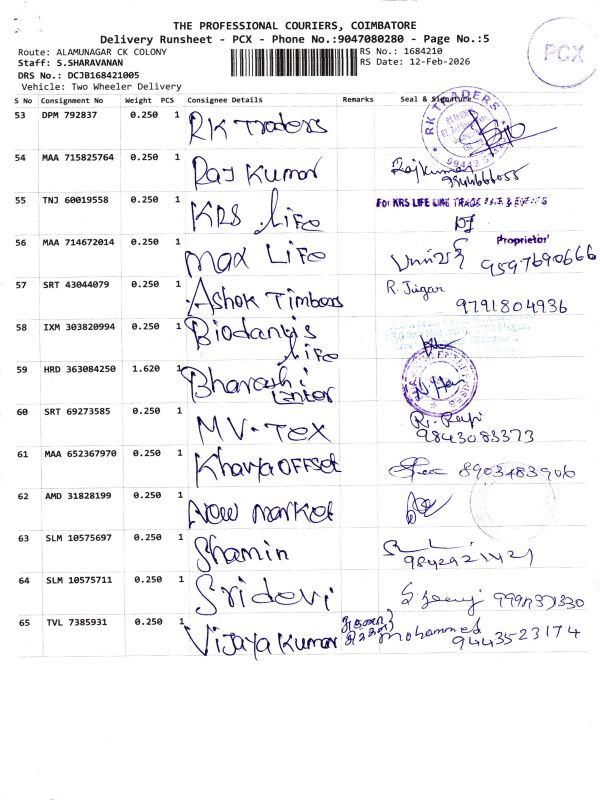 THE PROFESSIONAL COURIERS, COIMBATORE
Delivery Runsheet - PCX - Phone No.:9047080280 - Page No.:5
Route: ALAMUNAGAR CK COLONY
RS No.: 1684210
Staff: S.SHARAVANAN
RS Date: 12-Feb-2026
DRS No.: DCJB168421005
Vehicle: Two Wheeler Delivery
PCX
S No Consignment No Weight PCS Consignee Details Remarks Seal & Signature
53 DPM 792837 0.250 1 RK Traders RK TRADERS
54 MAA 715825764 0.250 1 Raj Kumar Rajkumar
55 TNJ 60019558 0.250 1 KRS Life For KRS LIFE LINE
Proprietor
56 MAA 714672014 0.250 1 Max Life 9597690666
57 SRT 43044079 0.250 1 Ashok Timbers R. Jugar
9791804936
58 IXM 303820994 0.250 1
Life
59 HRD 363084250 1.620 1
60 SRT 69273585 0.250 1 MV-Tex
9843083373
61 MAA 652367970 0.250 1 Khavya OFFSet 8903483906
62 AMD 31828199 0.250 1 New Market
63 SLM 10575697 0.250 1 Shamin
64 SLM 10575711 0.250 1 Sridevi
65 TVL 7385931 0.250 1 Vijaya Kumar Mohammed
9443523174